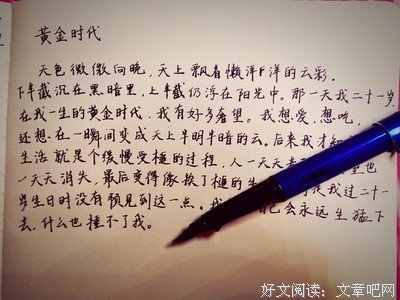 黄金时代
天色微微向晚，天上飘着懒洋洋的云彩.
下半截沉在黑暗里，上半截仍浮在阳光中。那一天我二十一岁，
在我一生的黄金时代，我有好多奢望。我想爱，想吃，
还想在一瞬间变成天上半明半暗的云。后来我才知
生活就是个缓慢受槌的过程，人一天天老 望也
一天天消失，最后变得像挨了槌的牛 我过二十一
岁生日时没有预见到这一点。我 己会永远生猛下
去，什么也捶不了我。
好文阅读：文章吧网